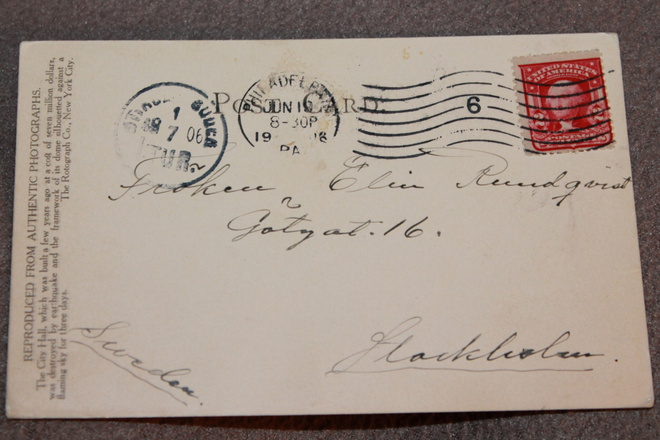 REPRODUCED FROM AUTHENTIC PHOTOGRAPHS.
The City Hall, which was built a few years ago at a cost of seven million dollars,
was destroyed by earthquake and the framework of its dome silhouetted against a
flaming sky for three days.
The Rotograph Co., New York City.
POST CARD
1
7 06
TUR.
PHILADELPHIA
JUN 19
8-30P
PA.
6
UNITED STATES
OF AMERICA
Fröken Elin Rundqvist
Götgat. 16.
Stockholm.
Sweden.